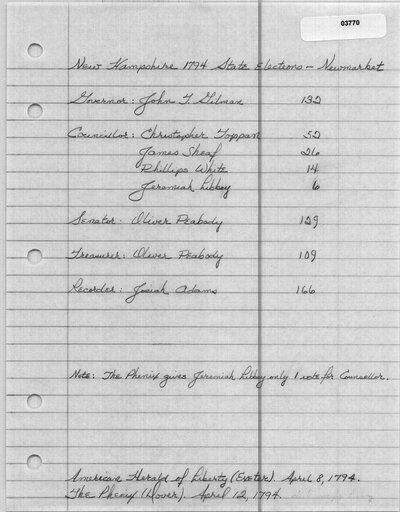 03770
New Hampshire 1794 State Elections - Newmarket
Governor: John T. Gilman 132
Councillor: Christopher Toppan 52
James Sheaf 26
Phillips White 14
Jeremiah Libbey 6
Senator: Oliver Peabody 129
Treasurer: Oliver Peabody 109
Recorder: Josiah Adams 166
Note: The Phenix gives Jeremiah Libbey only 1 vote for Counsellor.
American Herald of Liberty (Exeter). April 8, 1794.
The Phenix (Dover). April 12, 1794.